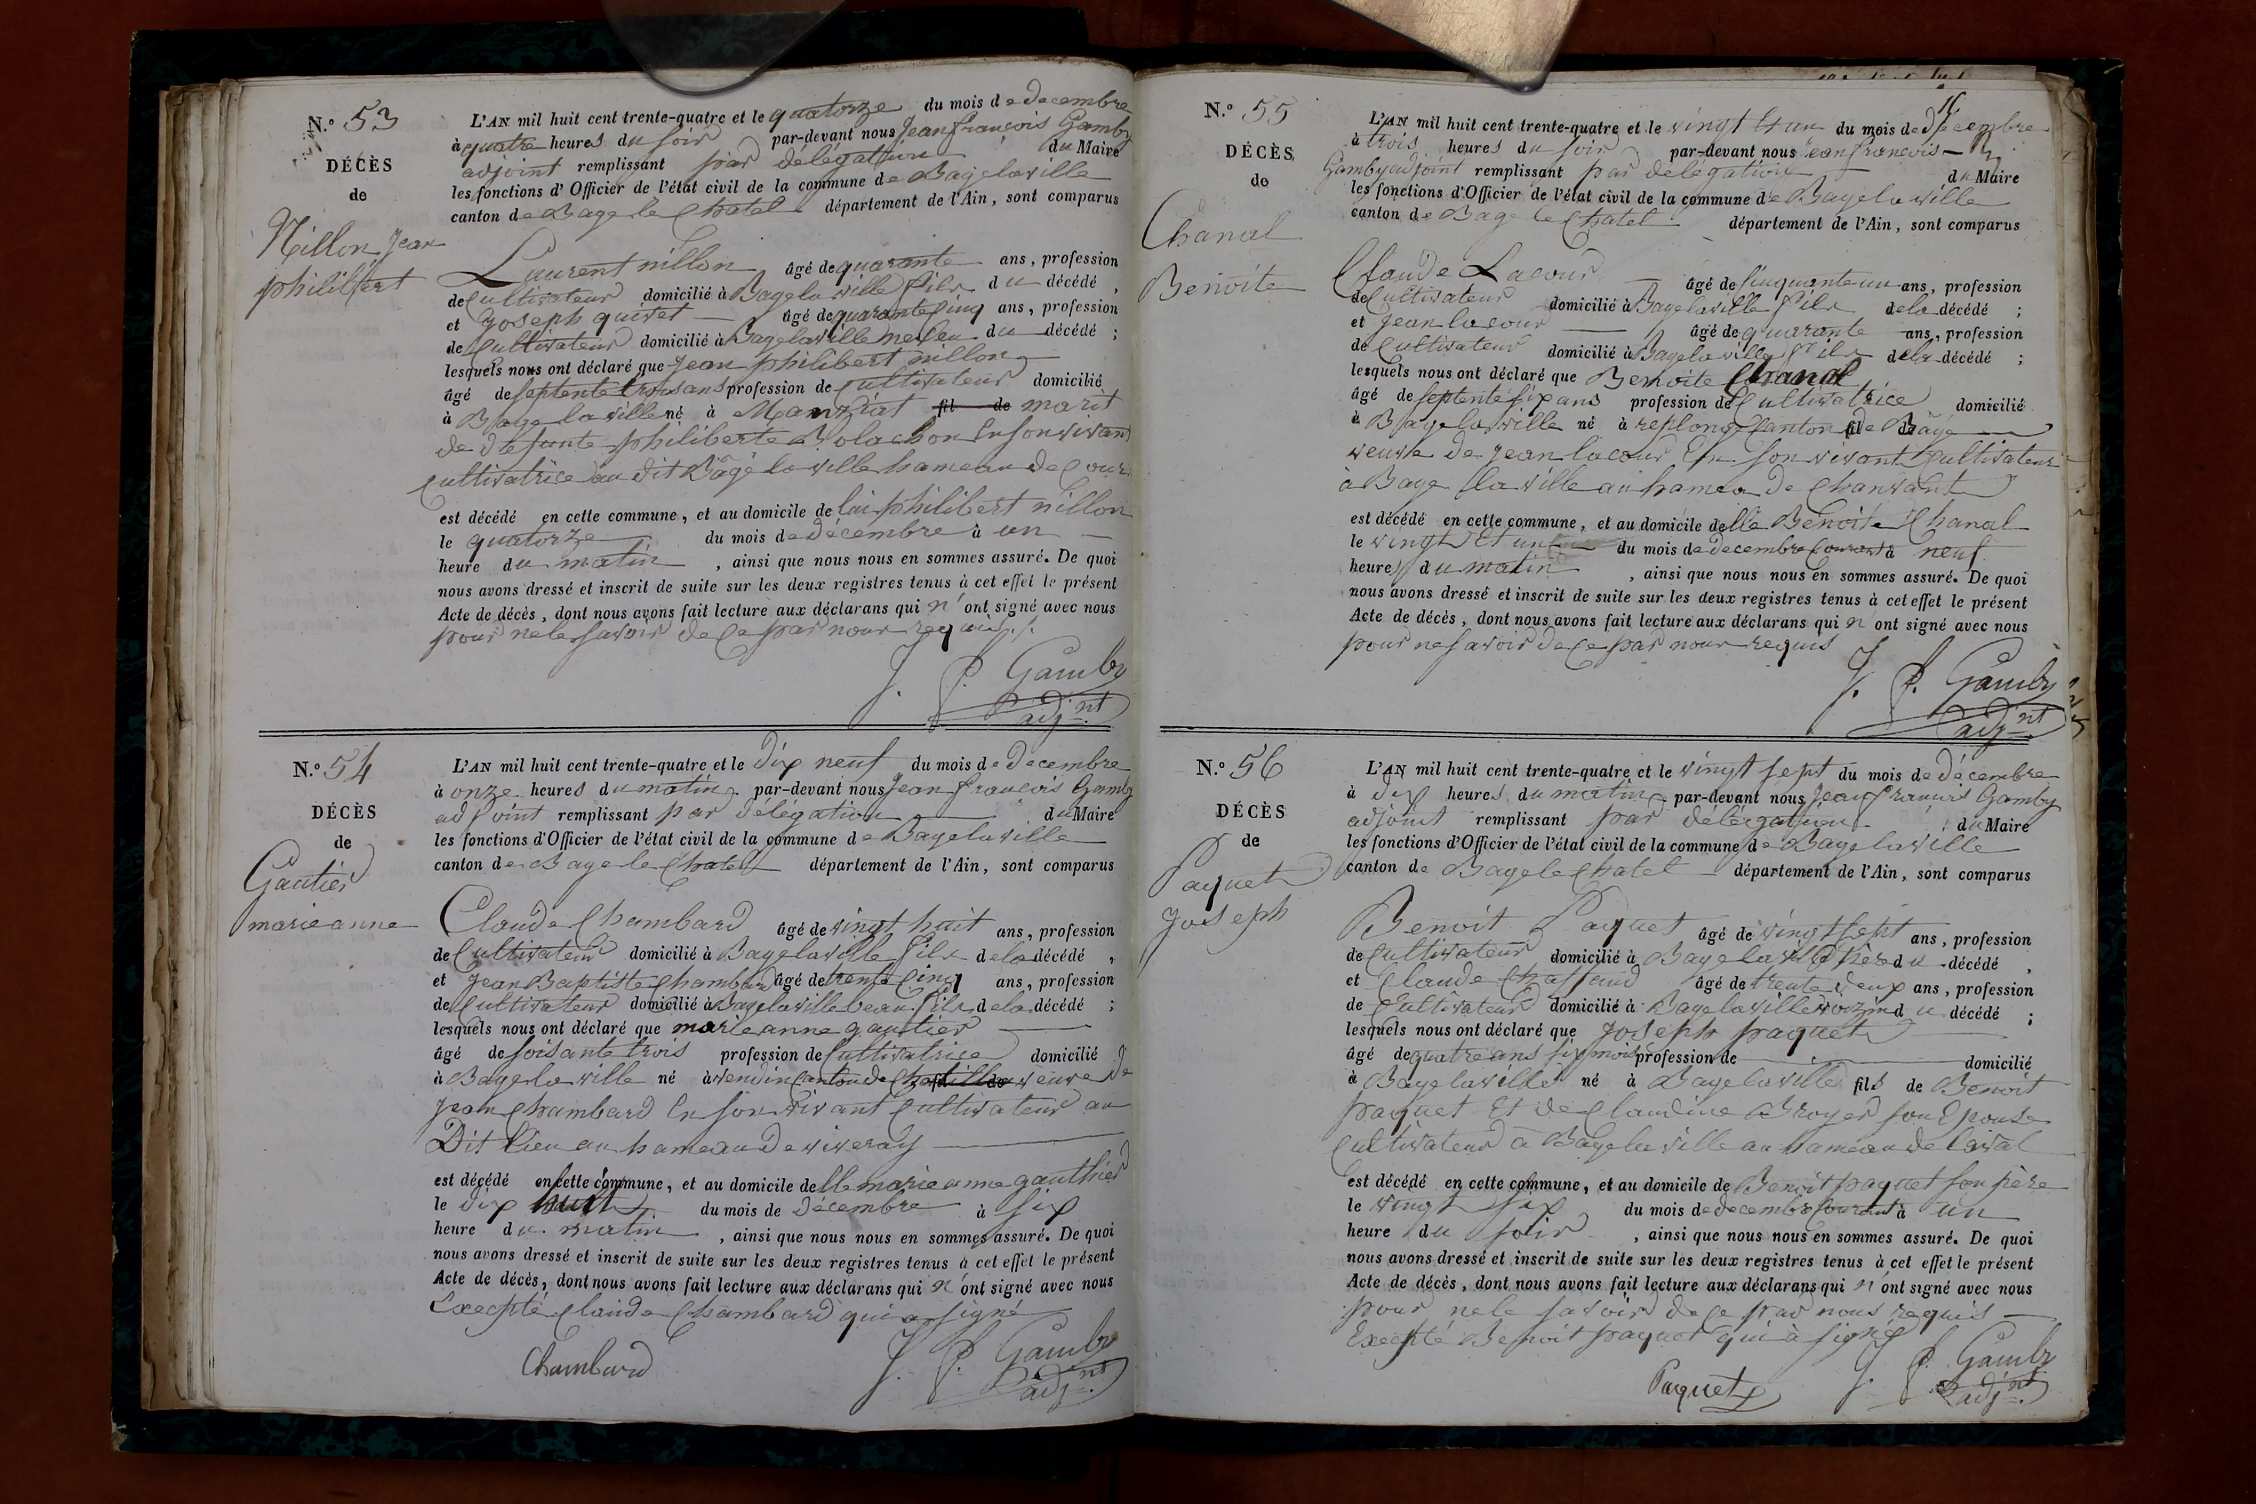 N.º 53
DÉCÈS
de
Nillon Jean
philibert
L'AN mil huit cent trente-quatre et le quatorze du mois de Decembre
à quatre heures du soir par-devant nous Jean françois Gamby
adjoint remplissant par délégation du Maire
les fonctions d'Officier de l'état civil de la commune de Bagelaville
canton de Bage le Chatel département de l'Ain, sont comparus
Laurent nillon âgé de quarante ans, profession
de Cultivateur domicilié à Bagelaville fils du décédé,
et Joseph quivet âgé de quarante Cinq ans, profession
de Cultivateur domicilié à Bagelaville neveu du décédé;
lesquels nous ont déclaré que Jean philibert nillon
âgé de septente trois ans profession de Cultivateur domicilié
à Bagelaville né à Manziat fil de marit
de defunte philiberte Bolachon En son vivant
Cultivatrice au dit Bâgé la ville hameau de Cour
est décédé en cette commune, et au domicile de lui philibert nillon
le quatorze du mois de décembre à un
heure du matin, ainsi que nous nous en sommes assuré. De quoi
nous avons dressé et inscrit de suite sur les deux registres tenus à cet effet le présent
Acte de décès, dont nous avons fait lecture aux déclarans qui n'ont signé avec nous
pour ne le savoir de Ce par nous requis
J. f. Gamby
adj.nt
N.º 54
DÉCÈS
de
Gautier
marie anne
L'AN mil huit cent trente-quatre et le dix neuf du mois de Decembre
à onze heures du matin par-devant nous Jean françois Gamby
adjoint remplissant par délégation du Maire
les fonctions d'Officier de l'état civil de la commune de Bagelaville
canton de Bage le Chatel département de l'Ain, sont comparus
Claude Chambard âgé de vingt huit ans, profession
de Cultivateur domicilié à Bagelaville fils de la décédé,
et Jean Baptiste Chambard âgé de trente Cinq ans, profession
de Cultivateur domicilié à Bagelaville beau fils de la décédé;
lesquels nous ont déclaré que marie anne gautier
âgé de soisante trois profession de Cultivatrice domicilié
à Bagelaville né à vendin Canton de Chatillon veuve de
Jean Chambard En son vivant Cultivateur au
Dit Lieu au hameau de viveray
est décédé en cette commune, et au domicile de lle marie anne gauthier
le dix huit du mois de décembre à six
heure du matin, ainsi que nous nous en sommes assuré. De quoi
nous avons dressé et inscrit de suite sur les deux registres tenus à cet effet le présent
Acte de décès, dont nous avons fait lecture aux déclarans qui n'ont signé avec nous
Excepté Claude Chambard qui a signé
Chambard
J. f. Gamby
adj.nt
N.º 55
DÉCÈS
de
Chanal
Benoite
L'AN mil huit cent trente-quatre et le vingt Et un du mois de décembre
à trois heures du soir par-devant nous Jean francois
Gamby adjoint remplissant par délégation du Maire
les fonctions d'Officier de l'état civil de la commune de Bagelaville
canton de Bage le Chatel département de l'Ain, sont comparus
Claude Lacour âgé de Cinquante un ans, profession
de Cultivateur domicilié à Bagelaville fils de la décédé;
et Jean lacour âgé de quarante ans, profession
de Cultivateur domicilié à Bagelaville fils de la décédé;
lesquels nous ont déclaré que Benoite Chanal
âgé de septente six ans profession de Cultivatrice domicilié
à Bagelaville né à replonge Canton de Bâgé
veuve de Jean lacour En son vivant Cultivateur
à Bage la ville au hamea de Chanvant
est décédé en cette commune, et au domicile de lle Benoite Chanal
le vingt Et un du mois de decembre Courant à neuf
heures du matin, ainsi que nous nous en sommes assuré. De quoi
nous avons dressé et inscrit de suite sur les deux registres tenus à cet effet le présent
Acte de décès, dont nous avons fait lecture aux déclarans qui n ont signé avec nous
pour ne savoir de Ce par nous requis
J. f. Gamby
adj.nt
N.º 56
DÉCÈS
de
Paquet
Joseph
L'AN mil huit cent trente-quatre et le vingt sept du mois de décembre
à dix heures du matin par-devant nous Jean francois Gamby
adjoint remplissant par délégation du Maire
les fonctions d'Officier de l'état civil de la commune de Bagelaville
canton de Bage le Chatel département de l'Ain, sont comparus
Benoit Paquet âgé de vingt sept ans, profession
de Cultivateur domicilié à Bagelaville Père du décédé,
et Claude Chaffaud âgé de trente deux ans, profession
de Cultivateur domicilié à Bagelaville voizin du décédé;
lesquels nous ont déclaré que Joseph paquet
âgé de quatre ans six mois profession de domicilié
à Bagelaville né à Bagelaville fils de Benoit
paquet Et de Claudine Broyer son Epouse
Cultivateur à Bagelaville au hameau de Laval
est décédé en cette commune, et au domicile de Benoit paquet son père
le vingt six du mois de decembre Courant à un
heure du soir, ainsi que nous nous en sommes assuré. De quoi
nous avons dressé et inscrit de suite sur les deux registres tenus à cet effet le présent
Acte de décès, dont nous avons fait lecture aux déclarans qui n'ont signé avec nous
pour ne le savoir de Ce par nous requis
Excepté Benoit paquet qui à signé
Paquet
J. f. Gamby
adj.nt